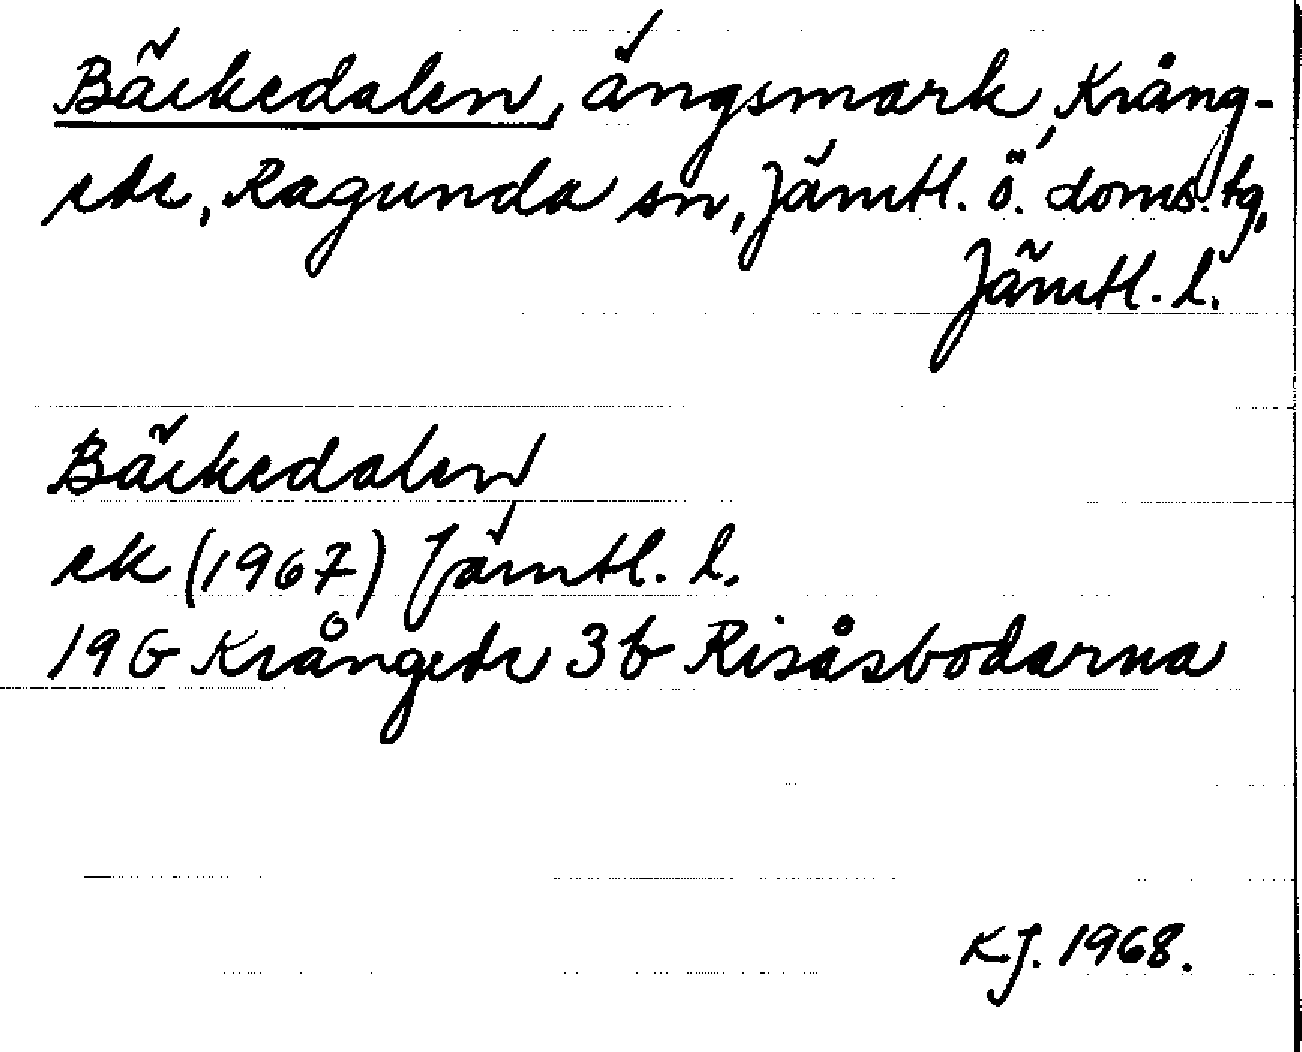 Bäckedalen, ängsmark, Krång-
ede, Ragunda sn, Jämtl. ö. doms.tg,
Jämtl. l.
Bäckedalen
ek (1967) Jämtl. l.
19G Krångede 3b Risåsbodarna
KJ. 1968.